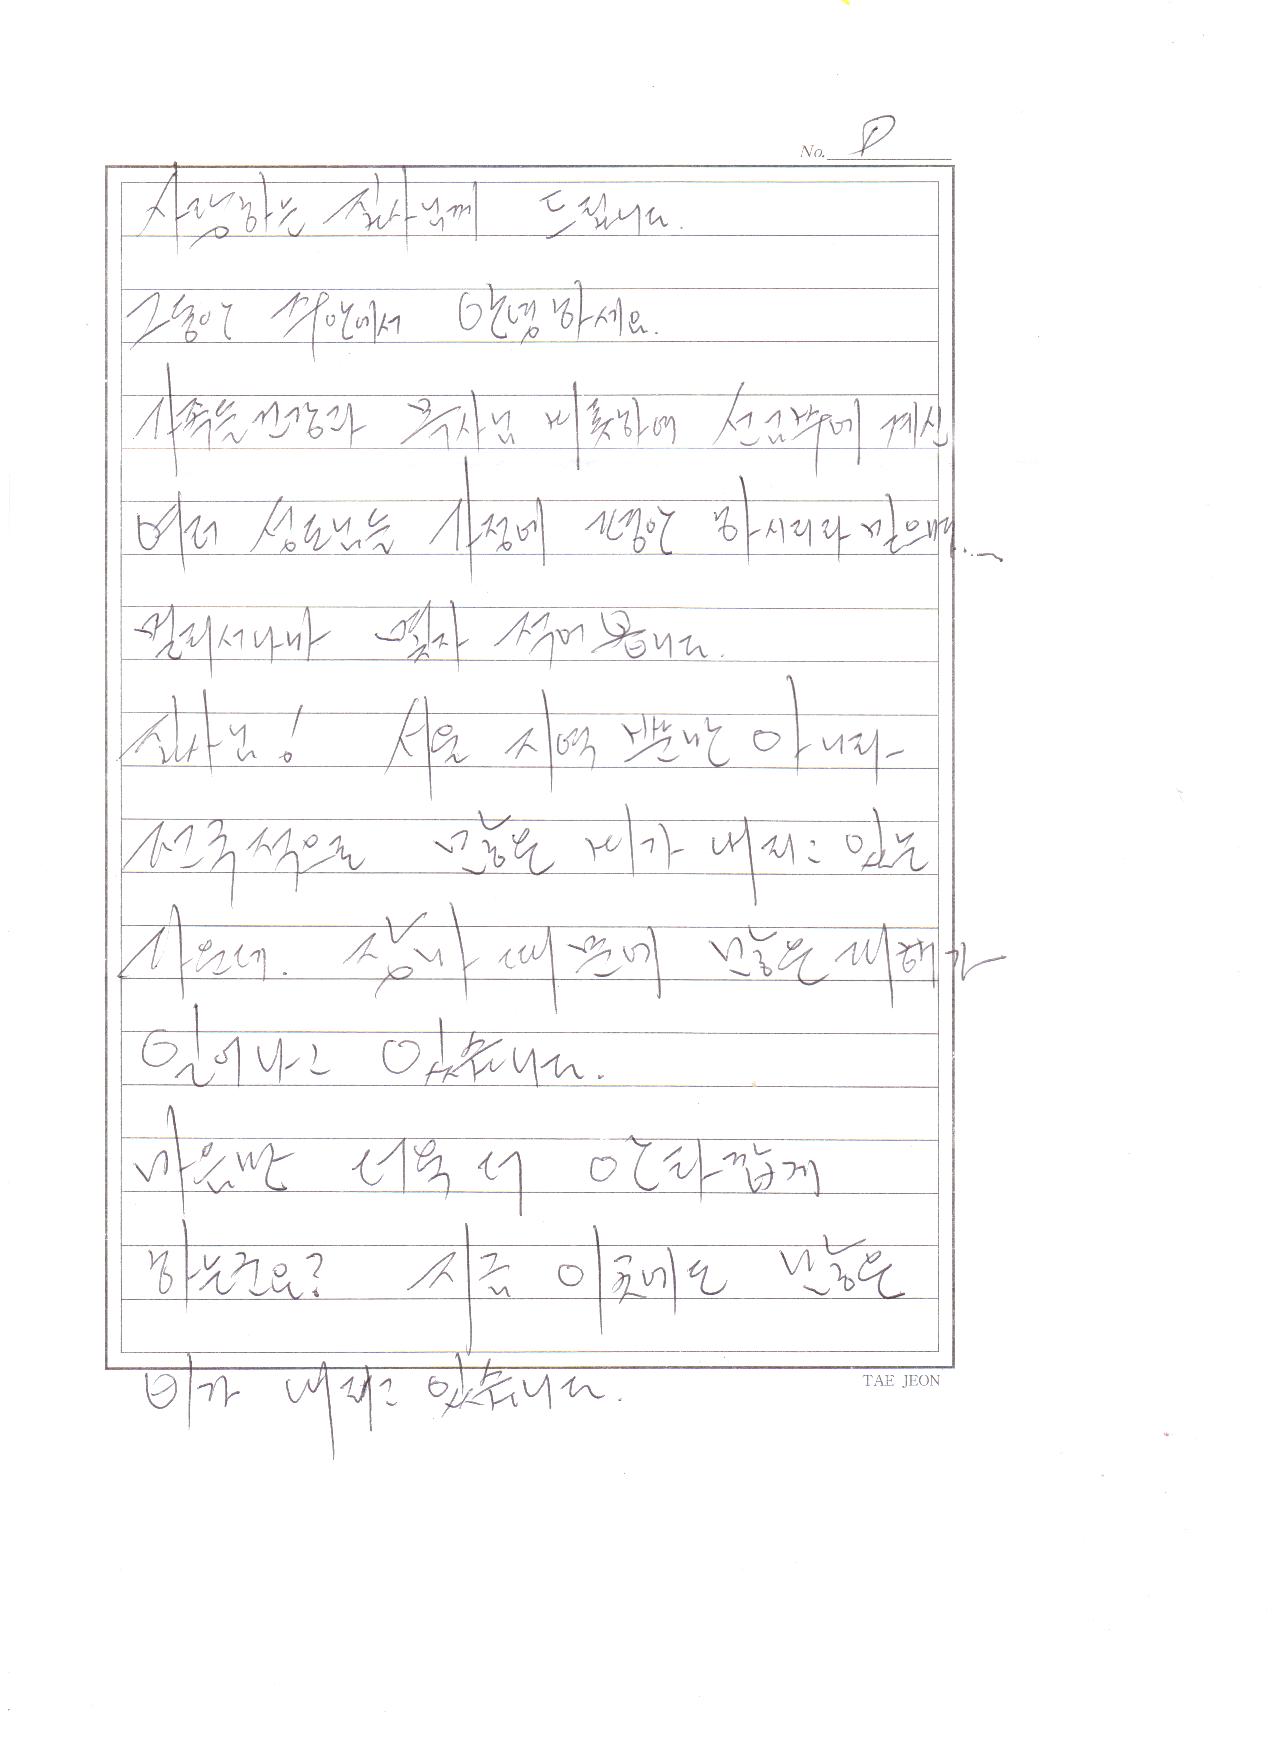 No. ①
사랑하는 집사님께 드립니다.
그동안 주안에서 안녕하세요.
가족들 건강과 목사님 비롯하여 선교부에 계신
여러 성도님들 가정에 평안 하시리라 믿으며...
멀리서나마 몇자 적어봅니다.
집사님! 서울 지역 뿐만 아니라
전국적으로 많은 비가 내리고 있는
가운데. 장마 때문에 많은 피해가
일어나고 있습니다.
마음만 더욱 더 안타깝게
하는군요? 지금 이곳에도 많은
비가 내리고 있습니다.
TAE JEON